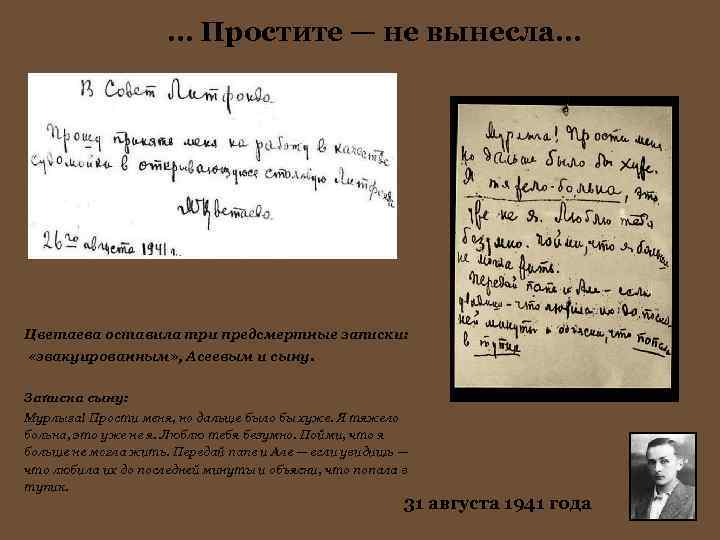 ... Простите — не вынесла...
В Совет Литфонда.
Прошу принять меня на работу в качестве
судомойки в открывающуюся столовую Литфонда.
МЦветаева
26го августа 1941 г.
Мурлыга! Прости меня,
но дальше было бы хуже.
Я тяжело-больна, это
уже не я. Люблю тебя
безумно. Пойми, что я больше
не могла жить.
Передай папе и Але — если
увидишь — что любила их до послед-
ней минуты и объясни, что попала
в тупик.
Цветаева оставила три предсмертные записки:
«эвакуированным», Асеевым и сыну.
Записка сыну:
Мурлыга! Прости меня, но дальше было бы хуже. Я тяжело
больна, это уже не я. Люблю тебя безумно. Пойми, что я
больше не могла жить. Передай папе и Але — если увидишь —
что любила их до последней минуты и объясни, что попала в
тупик.
31 августа 1941 года